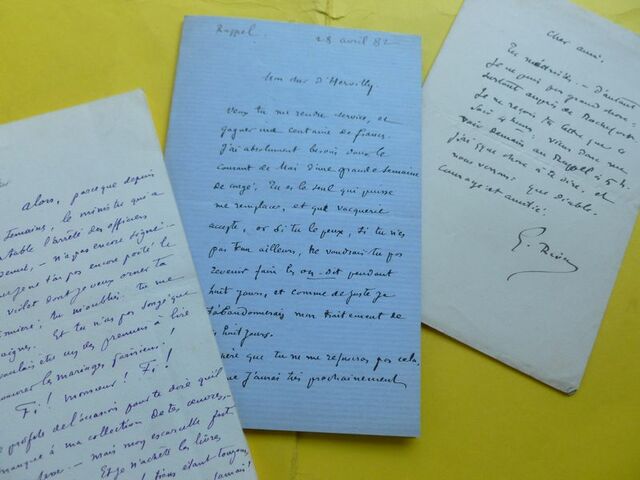 Alors, parceque depuis
semaines, le ministre qui a
table l'arrêté des officiers
n'a pas encore signé
t'a pas encore porté le
violet dont je veux orner ta
; tu m'oublies. tu me
. Et tu n'as pas songé que
voulais être un des premiers à lire
les mariages parisiens!
Fi! monsieur! Fi!
profite de l'occasion pour te dire qu'il
manque à ma collection de tes œuvres,
mais mon escarcelle fort
Et je n'achète les livres
étant toujours
Jamais!
Rappel. 28 avril 82
Mon cher d'Hervilly.
Veux tu me rendre service, et
gagner une centaine de francs.
J'ai absolument besoin dans le
courant de Mai d'une grande semaine
de congé. Tu es le seul qui puisse
me remplacer, et que Vacquerie
accepte, or si tu le peux, si tu n'es
pas tenu ailleurs, ne voudrais tu pas
revenir faire les on-dit pendant
huit jours, et comme de juste je
t'abandonnerais mon traitement de
huit jours.
père que tu ne me refuseras pas cela,
que j'aurai très prochainement
Cher ami.
Tu médis. — D'autant
Je ne puis pas grand chose —
surtout auprès de Rochefort.
Je ne reçois ta lettre que ce
soir 4 heures, viens donc me
voir demain au Rappel à 5 h.
j'ai quelque chose à te dire, et
nous verrons que diable.
Courage et amitié.